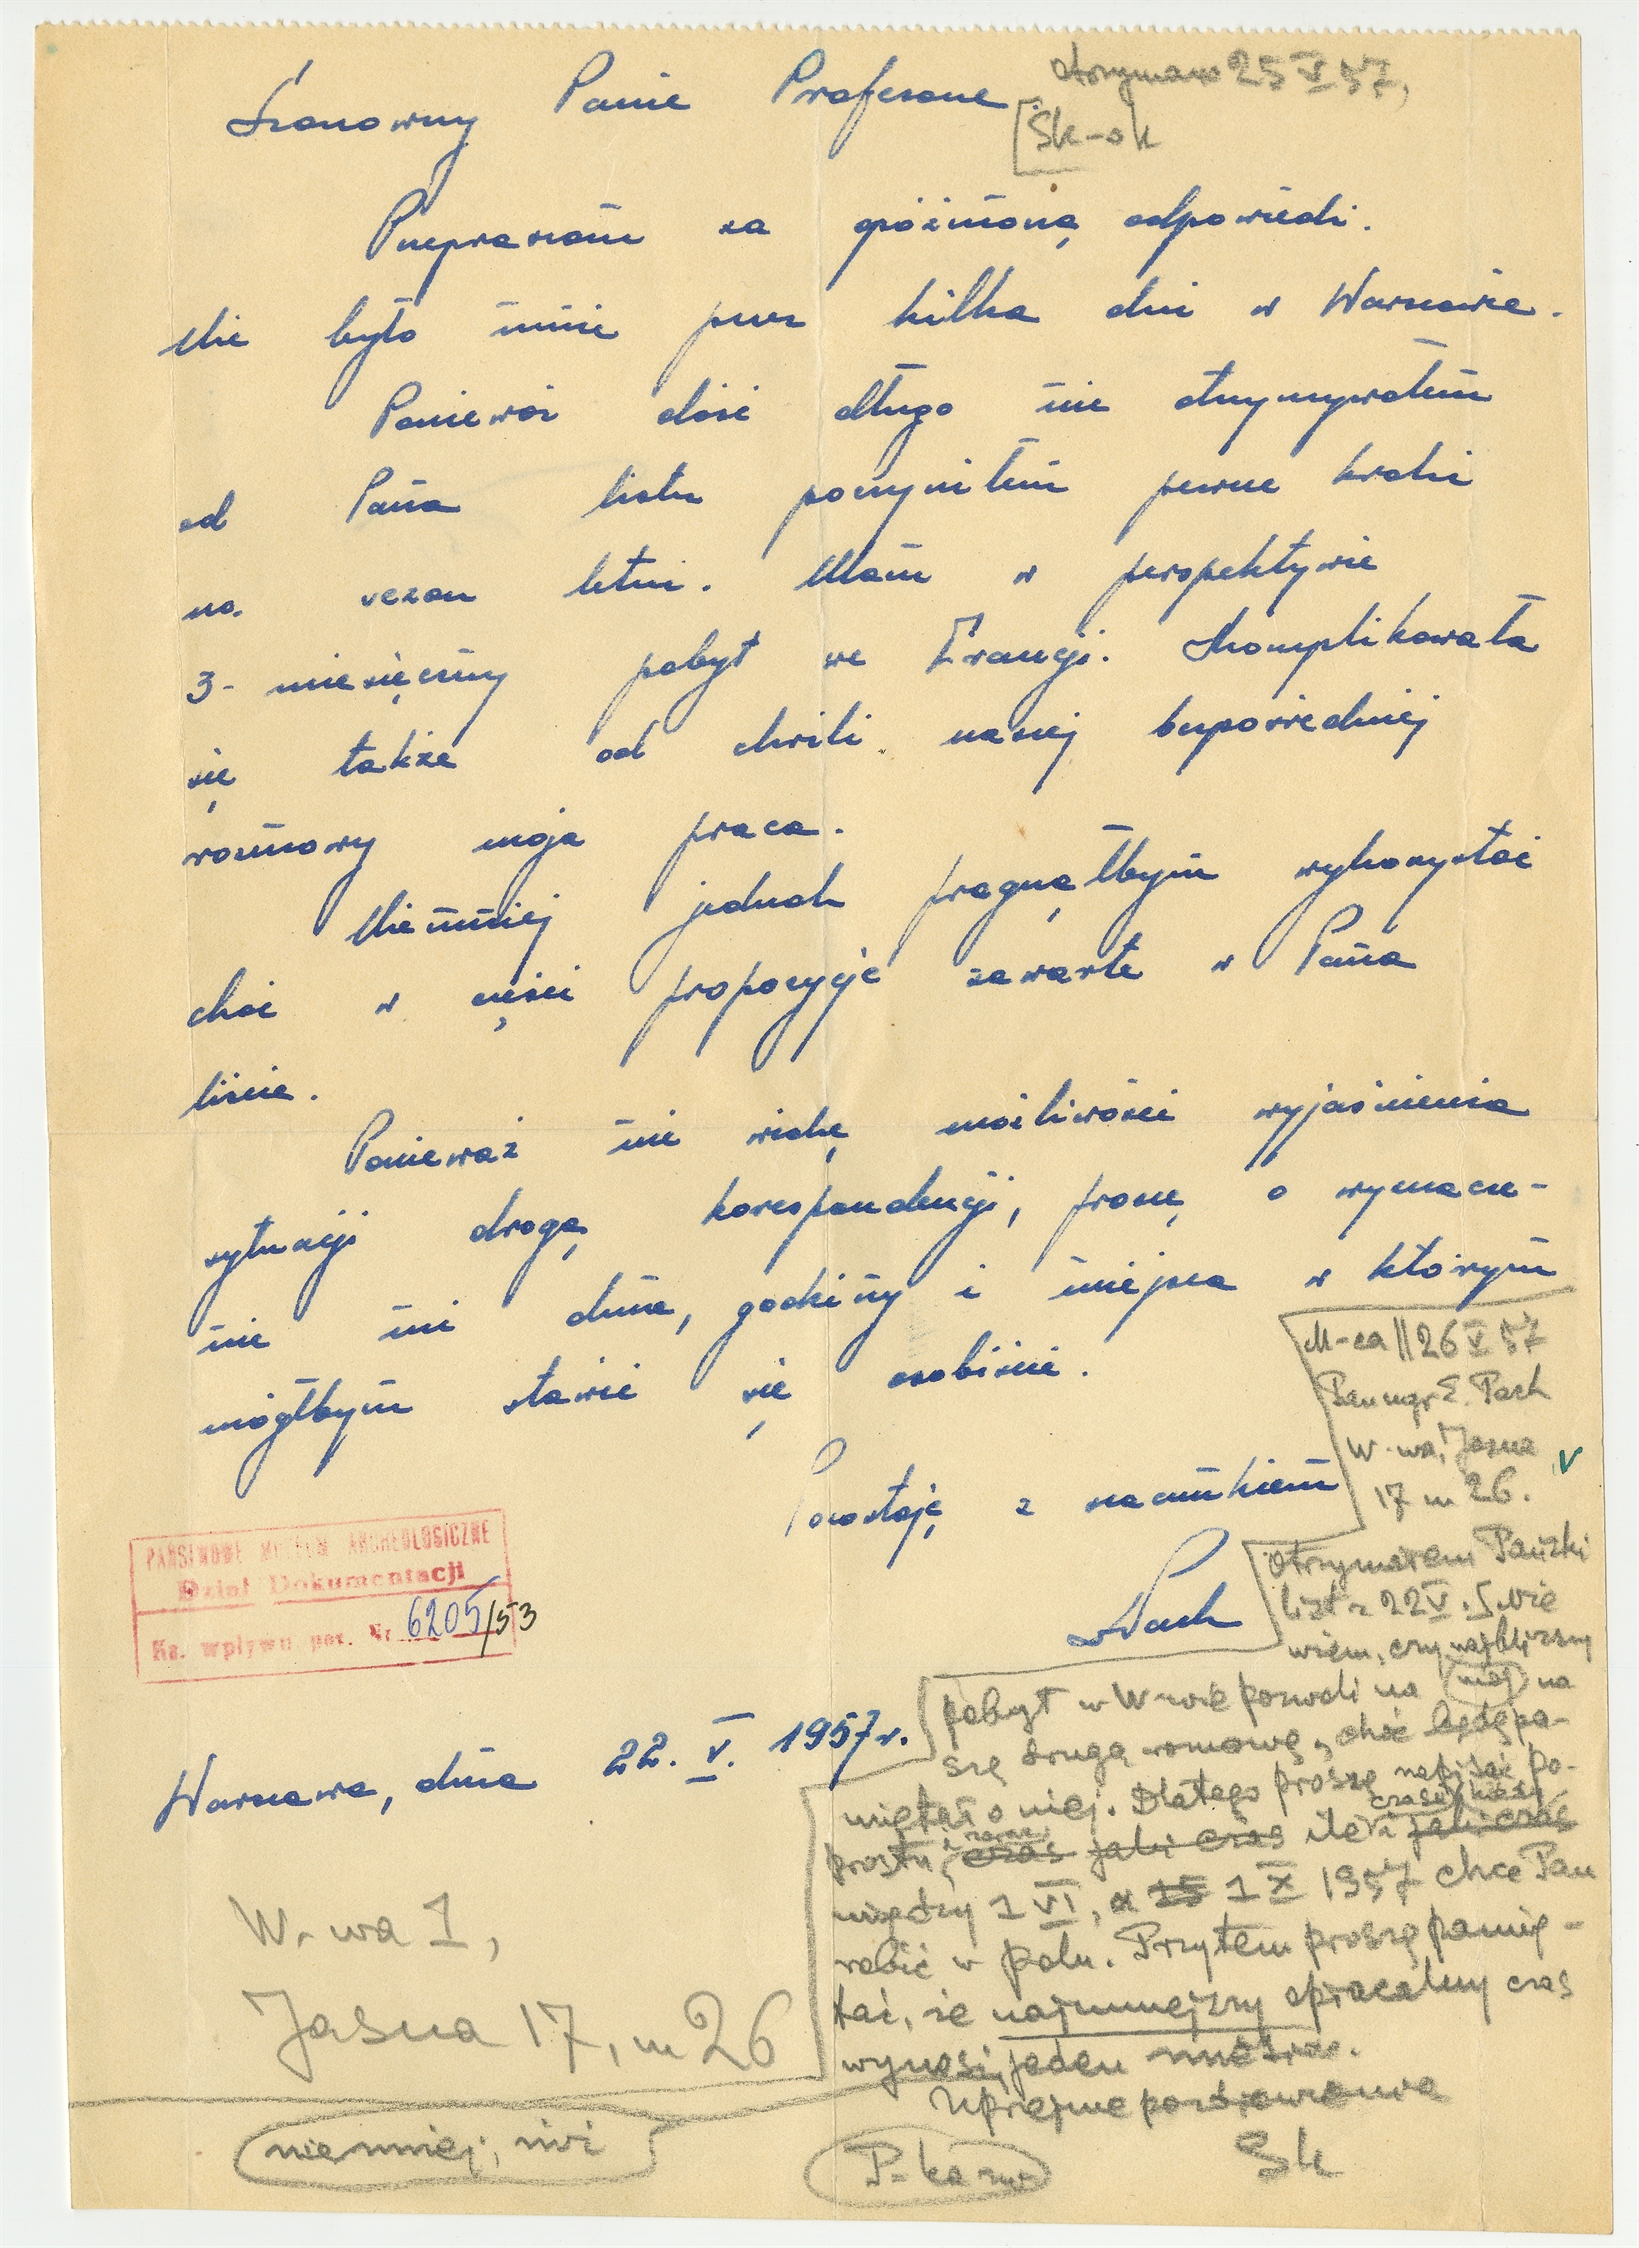 Szanowny Panie Profesorze
otrzymano 25 V 57,
Sk-ok
Przepraszam za opóźnioną odpowiedź.
Nie było mnie przez kilka dni w Warszawie.
Ponieważ dość długo nie otrzymywałem
od Pana listu poczyniłem pewne kroki
na sezon letni. Mam w perspektywie
3-miesięczny pobyt we Francji. Skomplikowała
się także od chwili naszej bezpośredniej
rozmowy moja praca.
Niemniej jednak pragnąłbym wykorzystać
choć w części propozycje zawarte w Pana
liście.
Ponieważ nie widzę możliwości wyjaśnienia
sytuacji drogą korespondencji, proszę o wyznacze-
nie mi dnia, godziny i miejsca w którym
mógłbym stawić się osobiście.
Pozostaję z szacunkiem
Pach
M-ca || 26 V 57
Pan mgr E. Pach
W-wa, Jasna
17 m 26.
v
PAŃSTWOWE MUZEUM ARCHEOLOGICZNE
Dział Dokumentacji
Ks. wpływu poz. Nr 6205/53
Warszawa, dnia 22. V. 1957 r.
Otrzymałem Pański
list z 22 V. Nie
wiem, czy najbliższy
mój
pobyt w W-wie pozwoli na
szą drugą rozmowę, choć będę pa-
miętał o niej. Dlatego proszę napisać po-
prostu, czas jaki czas ile i jaki czas
między 1 VI, a 15 1 X 1957 chce Pan
robić w polu. Przytem proszę pamię-
tać, że najmniejszy opłacalny czas
wynosi jeden miesiąc.
Uprzejme pozdrowienia
Sk
W-wa 1,
Jasna 17, m 26
niemniej,